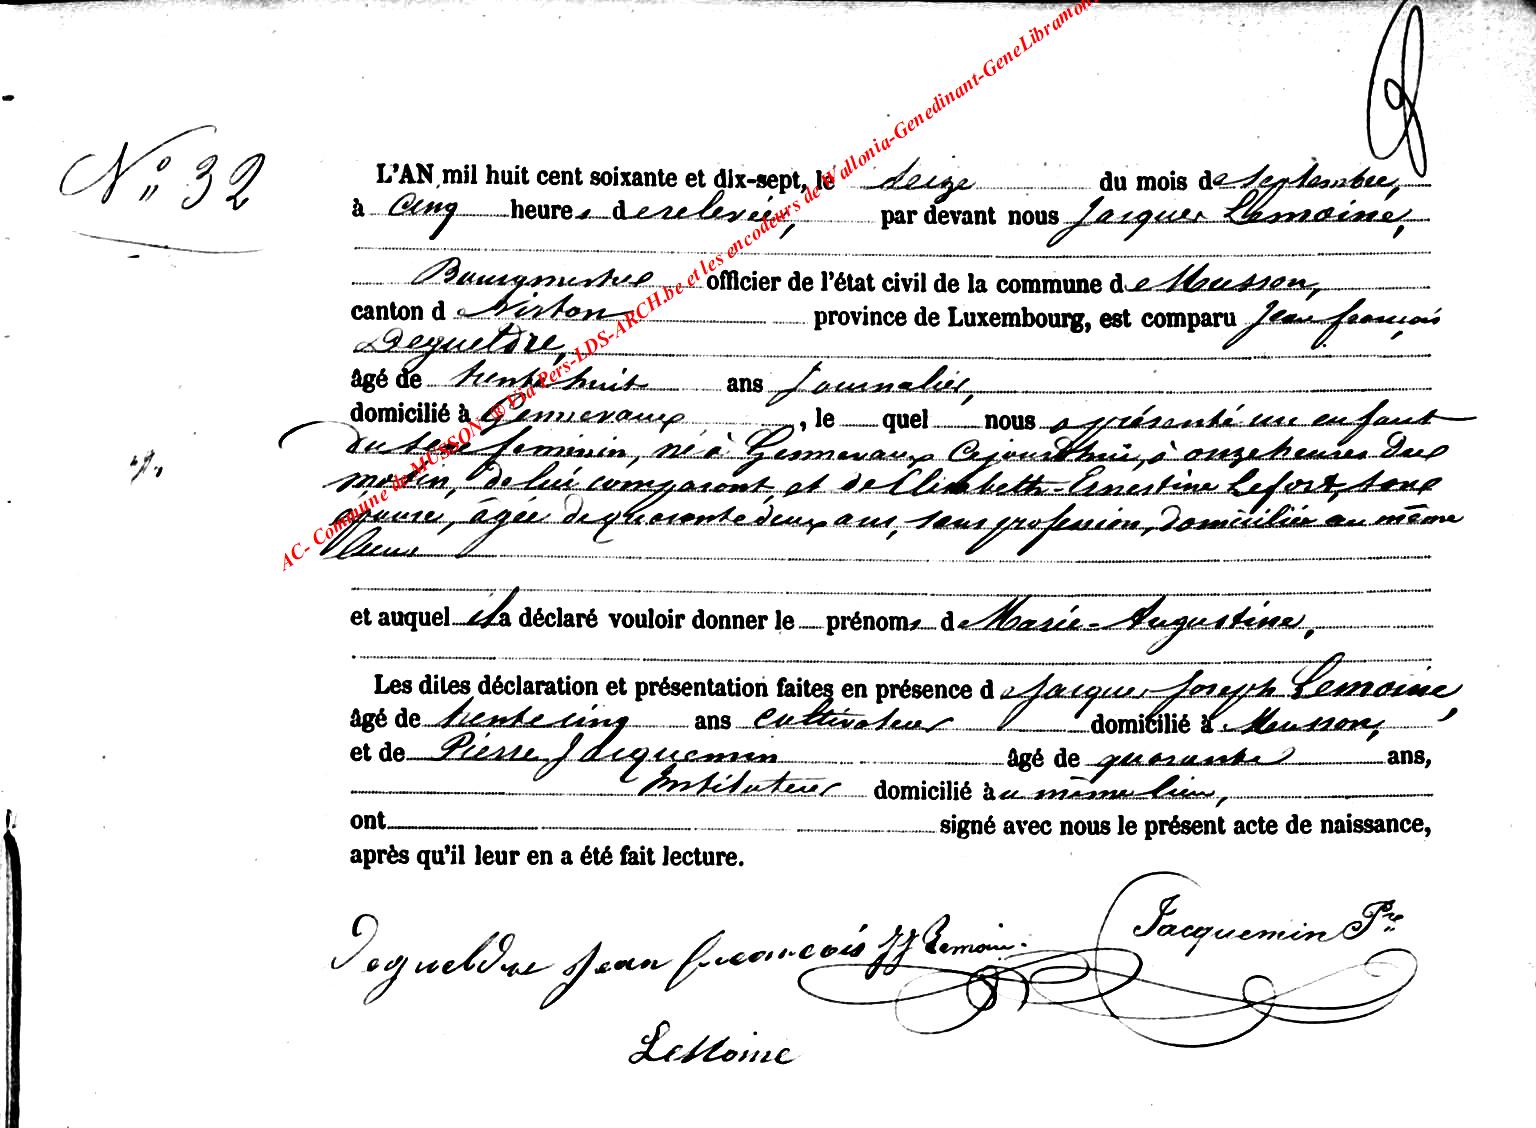 N° 32
L'AN mil huit cent soixante et dix-sept, le seize du mois de septembre,
à cinq heures de relevée, par devant nous Jacques Lemoine,
Bourgmestre officier de l'état civil de la commune de Musson,
canton de Virton province de Luxembourg, est comparu Jean françois
Degueldre,
âgé de trente huit ans Journalier,
domicilié à Gennevaux, le quel nous a présenté un enfant
du sexe feminin, né à Gennevaux cejourd'hui, à onze heures du
matin, de lui comparant, et de Elisabeth-Ernestine Lefort, son
épouse, âgée de quarante deux ans, sans profession, domiciliée au même
lieu
et auquel il a déclaré vouloir donner le prénoms de Marie-Augustine,
Les dites déclaration et présentation faites en présence de Jacques Joseph Lemoine,
âgé de trente cinq ans cultivateur domicilié à Musson,
et de Pierre Jacquemin âgé de quarante ans,
Instituteur domicilié au même lieu,
ont signé avec nous le présent acte de naissance,
après qu'il leur en a été fait lecture.
Degueldre Jean françois JJ Lemoine Jacquemin Pre
LeMoine
AC- Commune de MUSSON ® Via Pers-LDS-ARCH.be et les encodeurs de Wallonia-Genedinant-GeneLibramon